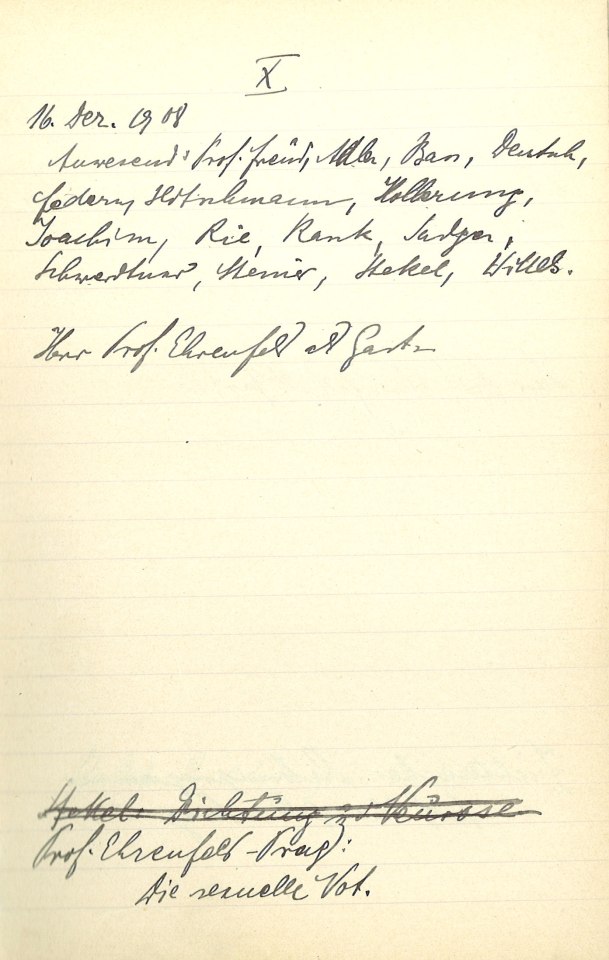 X
16. Dez. 1908
Anwesend: Prof. Freud, Adler, Bass, Deutsch,
Federn, Hitschmann, Hollerung,
Joachim, Rie, Rank, Sadger,
Schwerdtner, Steiner, Stekel, Wittels.
Herr Prof. Ehrenfels als Gast
Stekel: Dichtung und Neurose
Prof. Ehrenfels-Prag:
Die sexuelle Not.